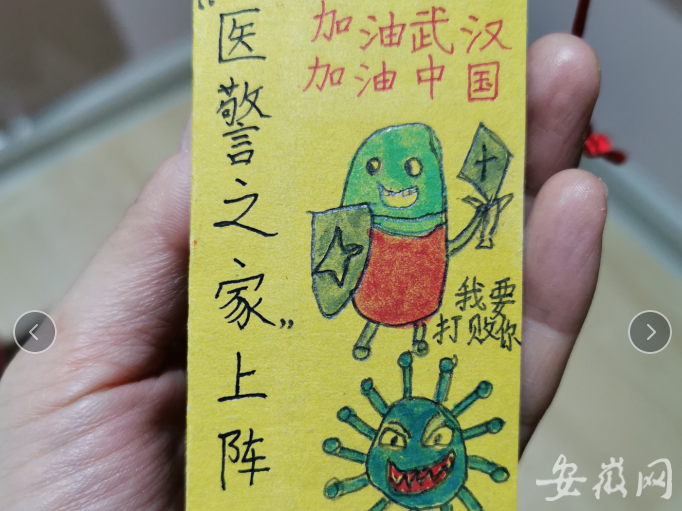 “医警之家”上阵
加油武汉
加油中国
我要
打败你
安徽网